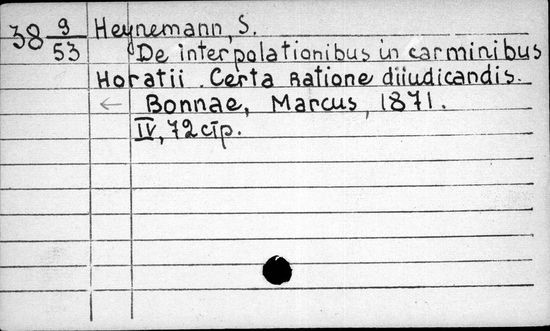 38 9/53 Heynemann, S.
De interpolationibus in carminibus
Horatii. Certa ratione diiudicandis.
← Bonnae, Marcus, 1871.
IV, 72 cīp.